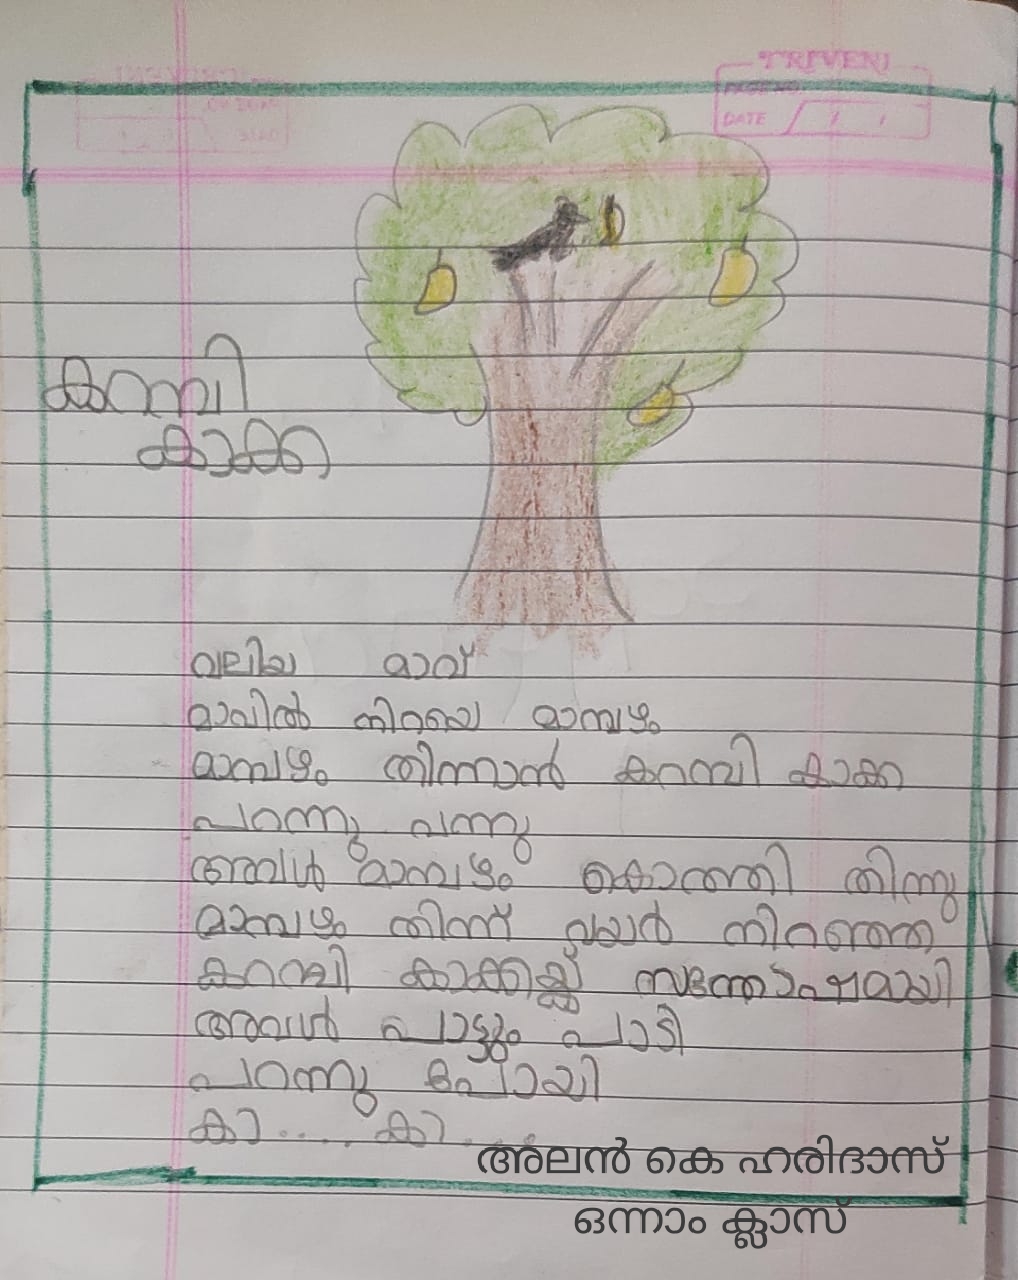 TRIVENI
PAGE NO.
DATE / /
കറമ്പി
കാക്ക
വലിയ മാവ്
മാവിൽ നിറയെ മാമ്പഴം
മാമ്പഴം തിന്നാൻ കറമ്പി കാക്ക
പറന്നു വന്നു
അവൾ മാമ്പഴം കൊത്തി തിന്നു
മാമ്പഴം തിന്ന് വയർ നിറഞ്ഞ
കറമ്പി കാക്കയ്ക്ക് സന്തോഷമായി
അവൾ പാട്ടും പാടി
പറന്നു പോയി
കാ..... കാ.....
അലൻ കെ ഹരിദാസ്
ഒന്നാം ക്ലാസ്